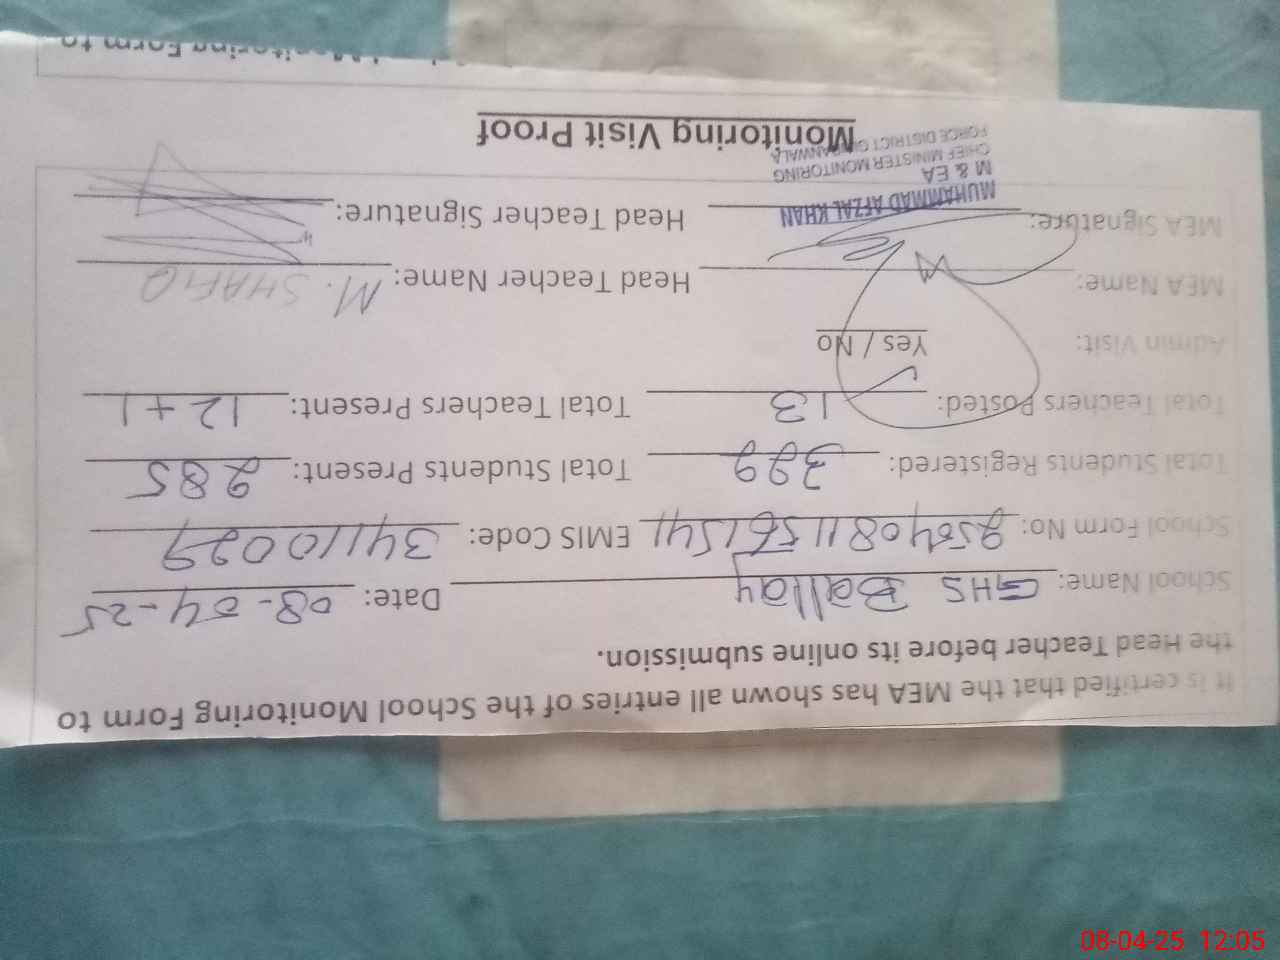 It is certified that the MEA has shown all entries of the School Monitoring Form to
the Head Teacher before its online submission.
School Name: GHS Ballay Date: 08-04-25
School Form No: 25040811561541 EMIS Code: 34110029
Total Students Registered: 322 Total Students Present: 285
Total Teachers Posted: 13 Total Teachers Present: 12+1
Admin Visit: Yes / No
MEA Name: Head Teacher Name: M. SHAFIQ
MEA Signature: Head Teacher Signature:
MUHAMMAD AFZAL KHAN
M & EA
CHIEF MINISTER MONITORING
FORCE DISTRICT GUJRANWALA
Monitoring Visit Proof
Monitoring Form to
08-04-25 12:05